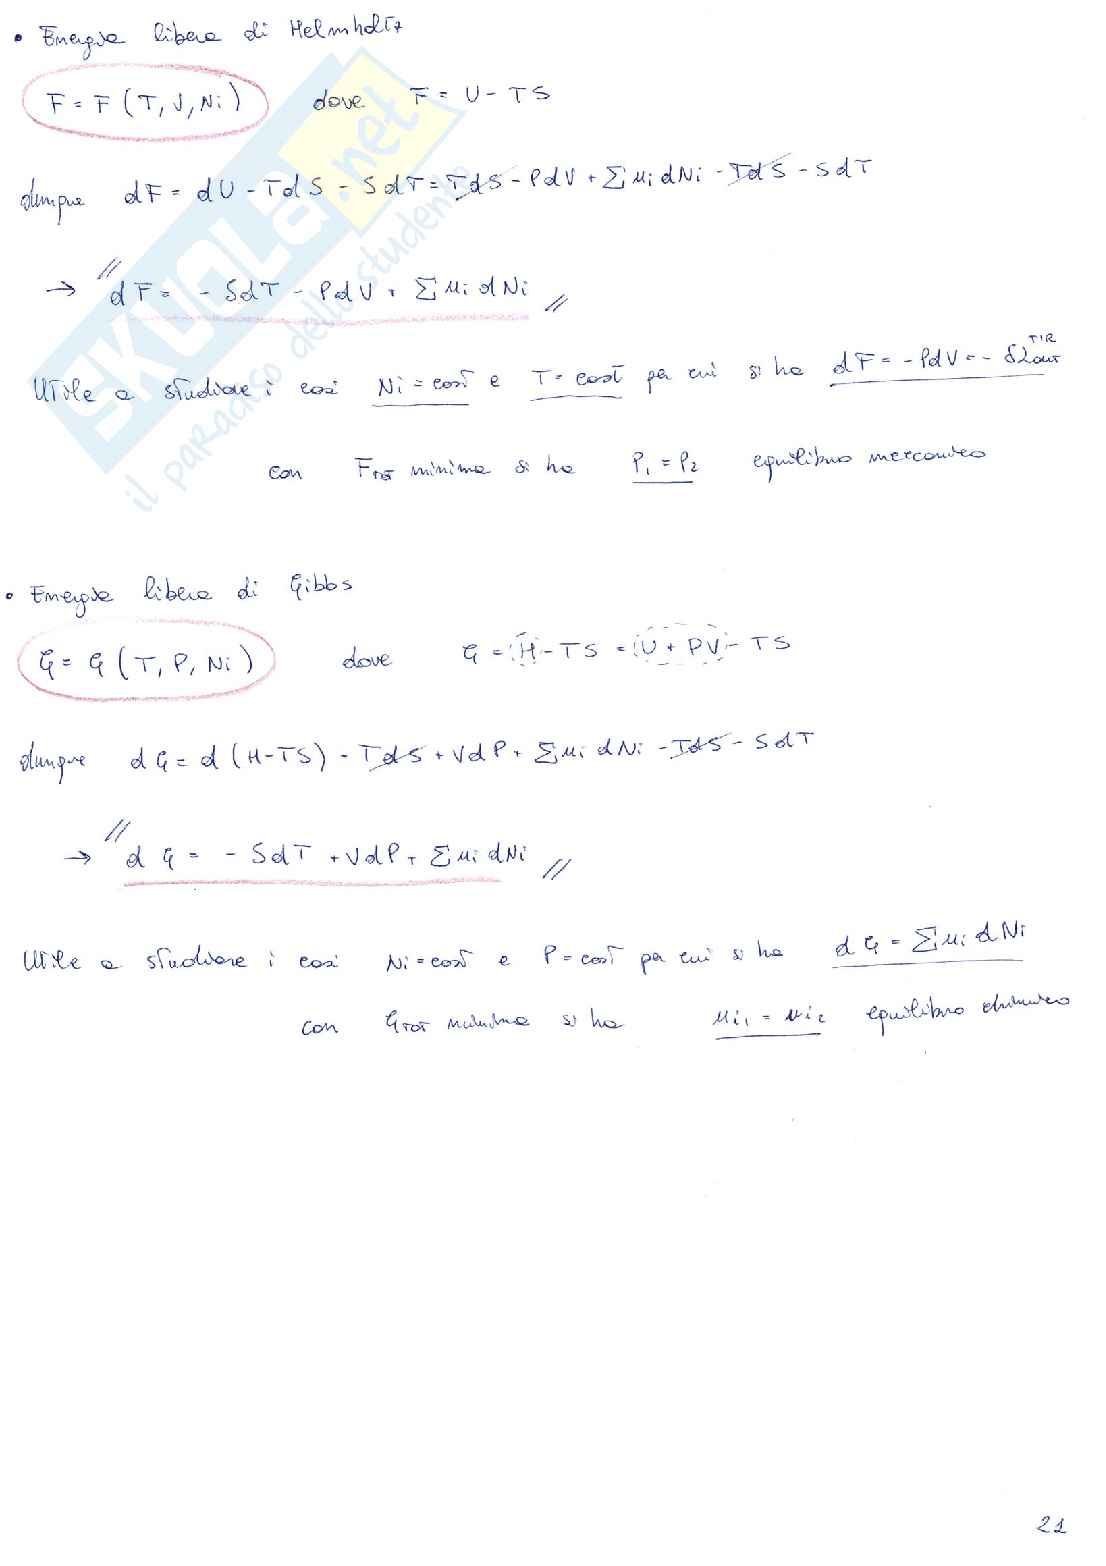 • Energia libera di Helmholtz
F = F (T, V, Ni) dove F = U - TS
dunque dF = dU - TdS - SdT = TdS - PdV + Σ μi dNi - TdS - SdT
→ // dF = - SdT - PdV + Σ μi dNi //
Utile a studiare i casi Ni = cost e T = cost per cui si ha dF = - PdV = - δLout TIR
con Ftot minima si ha P1 = P2 equilibrio meccanico
• Energia libera di Gibbs
G = G (T, P, Ni) dove G = H - TS = U + PV - TS
dunque dG = d (H-TS) - TdS + VdP + Σ μi dNi - TdS - SdT
→ // dG = - SdT + VdP + Σ μi dNi //
Utile a studiare i casi Ni = cost e P = cost per cui si ha dG = Σ μi dNi
con Gtot minima si ha μi1 = μi2 equilibrio chimico
21
SKUOLA.net
il paradiso dello studente